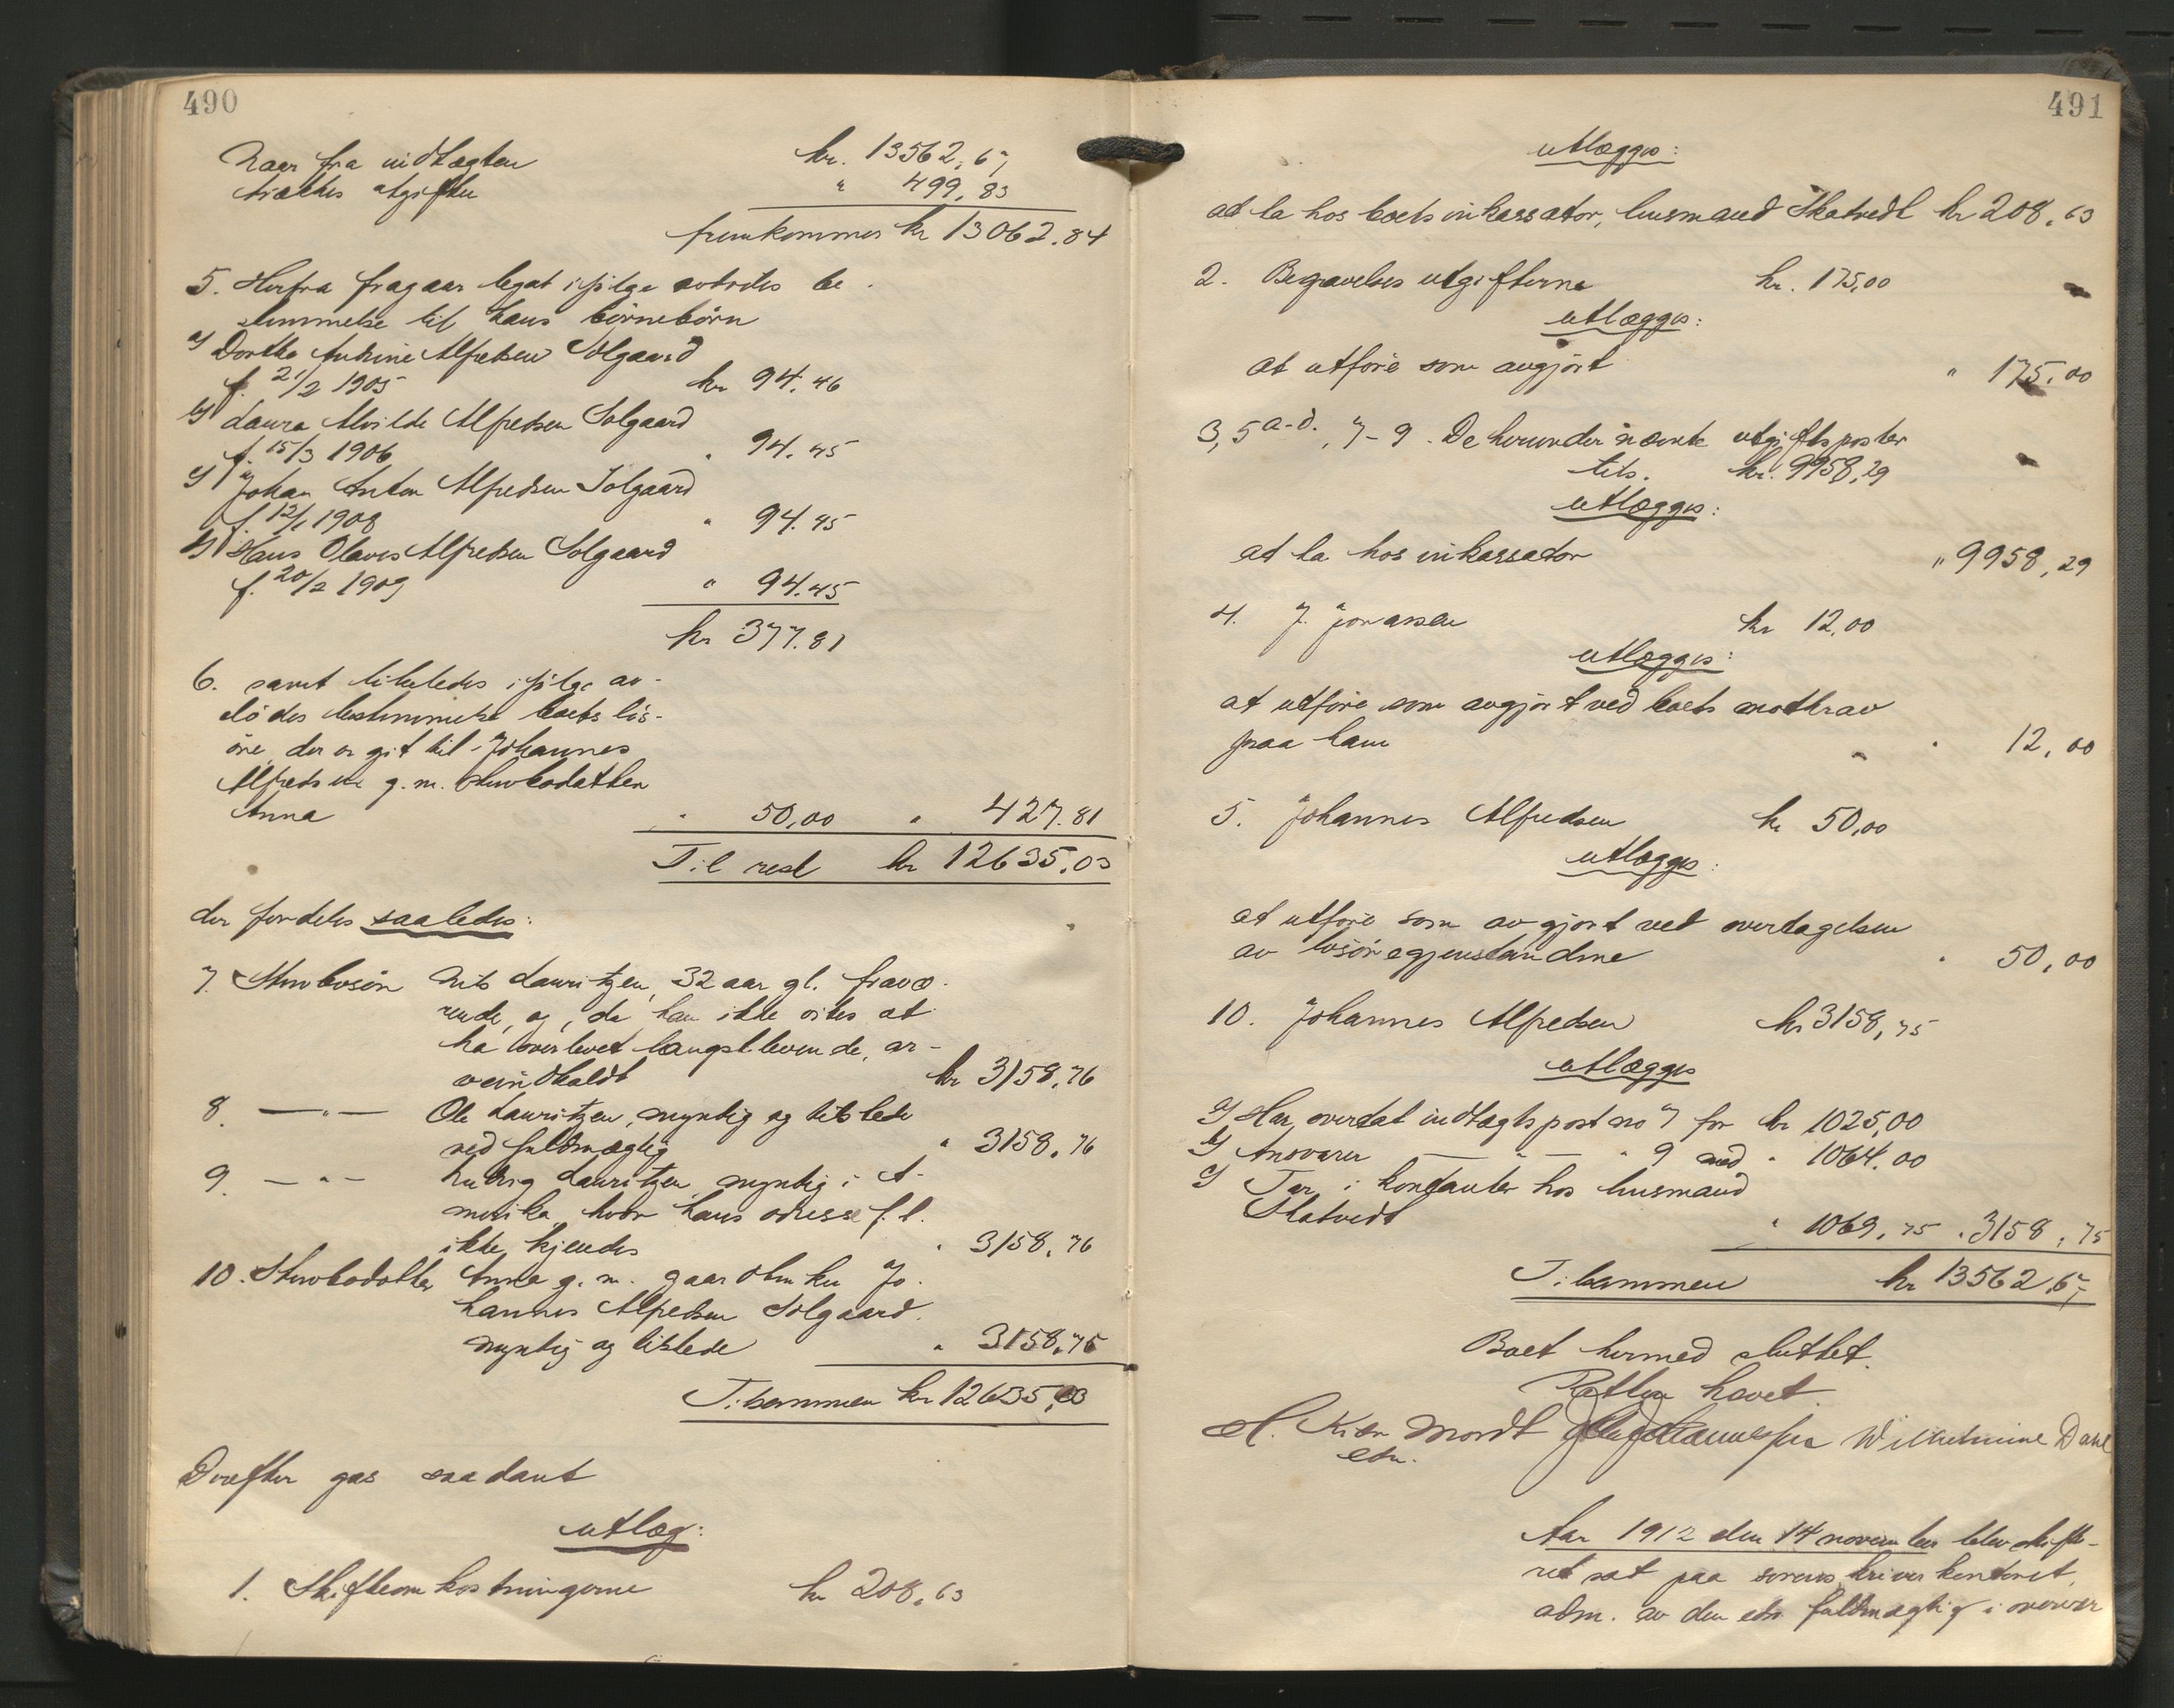 490
Naar fra indtægten kr. 13562,67
trækkes utgiften " 499,83
fremkommer kr 13062.84
5. Herfra fragaar legat ifølge avdødes be-
stemmelse til hans børnebørn
a) Dorthe Andrine Alfredsen Solgaard
f. 21/2 1905 kr 94.46
b) Laura Alvilde Alfredsen Solgaard
f. 15/3 1906 " 94.45
c) Johan Anton Alfredsen Solgaard
f. 12/1 1908 " 94.45
d) Hans Olaves Alfredsen Solgaard
f. 20/2 1909 " 94.45
kr 377.81
6. samt likeledes ifølge av-
dødes bestemmelse boets løs-
øre, der er git til Johannes
Alfredsen g. m. stervbodatter
Anna " 50,00 " 427.81
Til rest kr 12635.03
der fordeles saaledes:
7. Stervbosøn Nils Lauritzen, 32 aar gl. fravæ-
rende, og, da han ikke vites at
ha overlevet længstlevende, ar-
veindkaldt kr 3158.76
8. —"— Ole Lauritzen, myndig og tilstede
ved fuldmægtig " 3158.76
9. —"— Ludvig Lauritzen myndig i A-
merika, hvor hans adresse f. t.
ikke kjendes " 3158.76
10. Stervbodatter Anna g. m. gaardbruker Jo-
hannes Alfredsen Solgaard.
myndig og tilstede " 3158.75
Tilsammen kr 12635,03
Derefter gas saadant
utlæg:
1. Skifteomkostningerne kr 208,63
491
utlægges:
at ta hos boets inkassator, lensmand Skatvedt kr 208.63
2. Begravelses utgifterne kr. 175,00
utlægges:
at utføre som avgjort " 175.00
3, 5 a-d., 7-9. De herunder nævnte utgiftsposter
tils. kr. 9958,29
utlægges:
at ta hos inkassator " 9958,29
4. J. Jonassen kr 12,00
utlægges:
at utføre som avgjort ved boets motkrav
paa ham " 12,00
5. Johannes Alfredsen kr 50,00
utlægges:
at utføre som avgjort ved overtagelsen
av løsøregjenstandene " 50,00
10. Johannes Alfredsen kr 3158,75
utlægges
a) Har overtat indtægtspost no 7 for kr 1025,00
b) Ansvarer —"— " 9 med " 1064.00
c) Tar i kontanter hos lensmand
Skatvedt " 1069,75 " 3158,75
Tilsammen kr 13562,67
Boet hermed sluttet.
Retten hævet.
H. Kiær Mordt Wilhelmine Dahl
edsv.
Aar 1912 den 14 november blev skifte-
ret sat paa sorenskriverkontoret,
adm. av den edsv. fuldmægtig i overvær